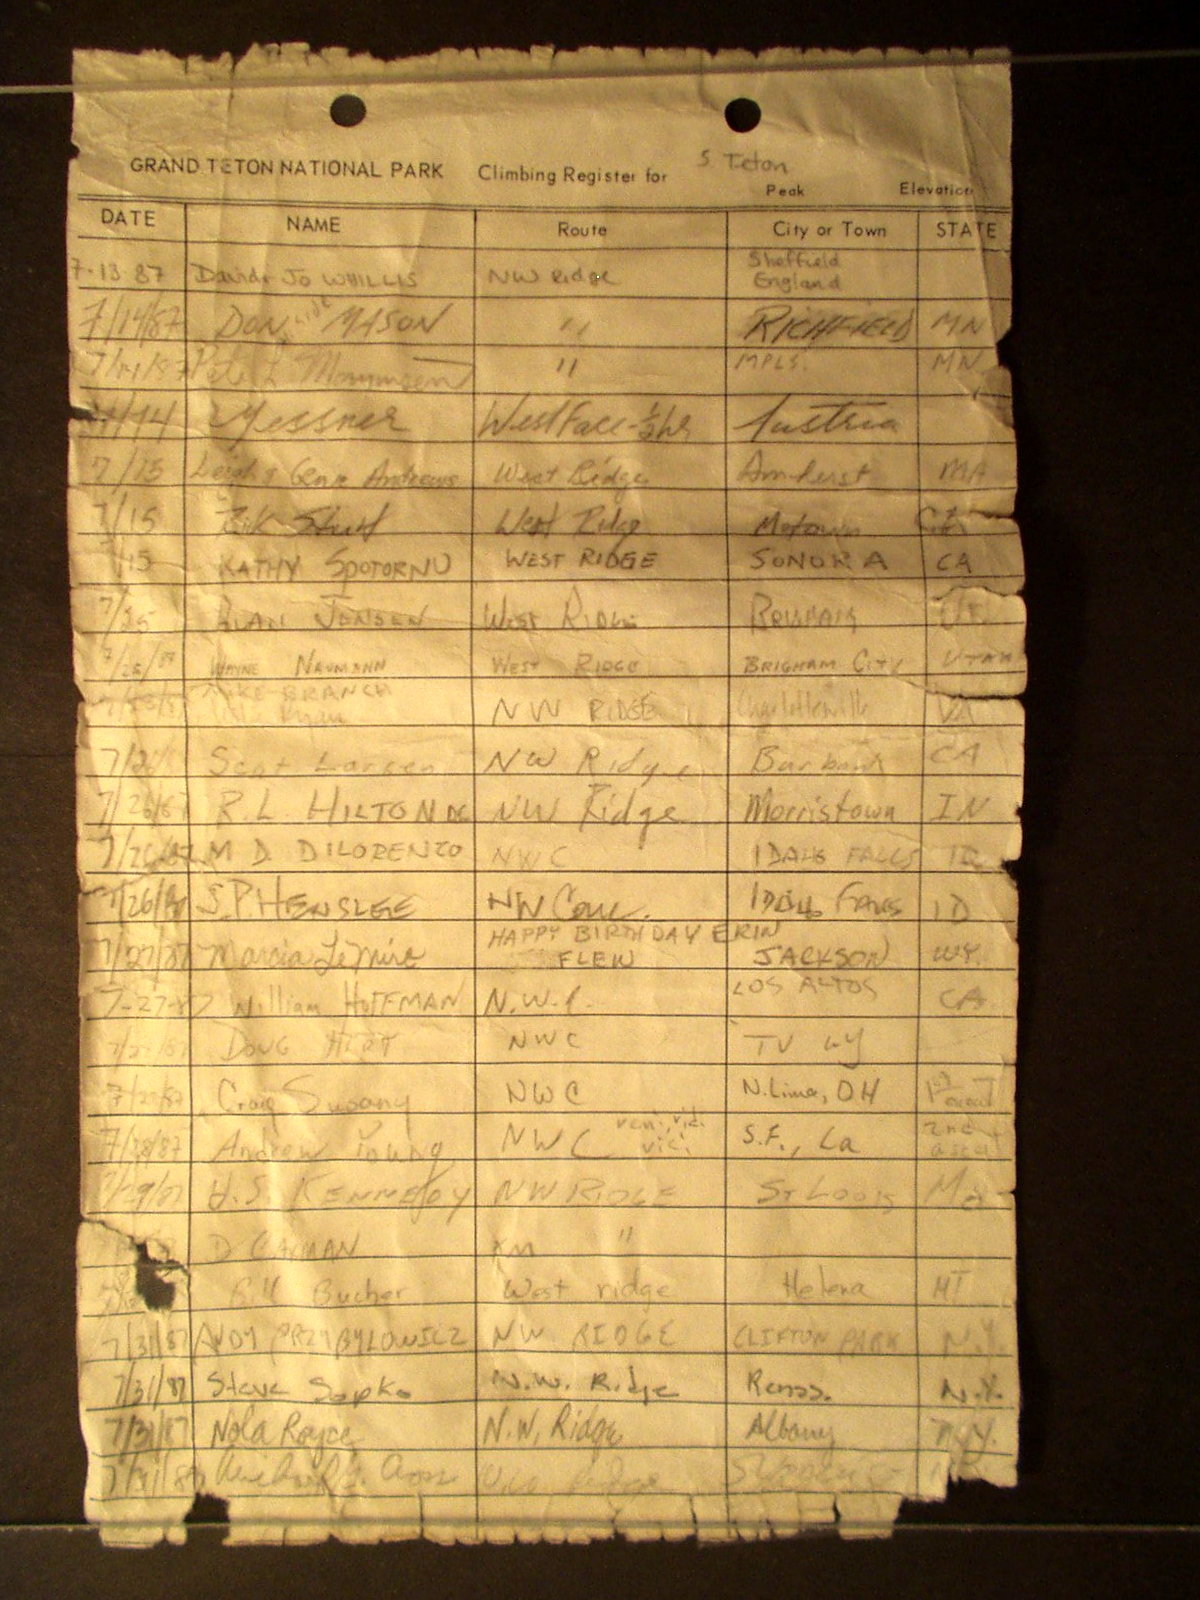 S Teton
GRAND TETON NATIONAL PARK Climbing Register for
Peak Elevation
DATE NAME Route City or Town STATE
7-13 87 David & Jo WHILLIS NW Ridge Sheffield England
7/14/87 DON MASON " RICHFIELD MN
" MPLS. MN
Messner West Face - 1/2 hr Austria
7/15 Andrews West Ridge Amherst MA
7/15 West Ridge
7/15 KATHY SPOTORNO WEST RIDGE SONORA CA
7/25 ALAN JENSEN West RIDGE
7/26/87 WAYNE NAUMANN WEST RIDGE BRIGHAM CITY UTAH
MIKE BRANCH
Ryan NW RIDGE Charlottesville VA
7/26 Scot Larsen NW Ridge Burbank CA
7/26/87 R.L. HILTON NW Ridge Morristown IN
7/26/87 M D. DILORENZO NWC IDAHO FALLS ID
7/26/87 S.P. HENSLEE NW Coul. IDAHO FALLS ID
HAPPY BIRTHDAY ERIN
7/27/87 Marcia LeMire FLEW JACKSON WY.
7-27-87 William HOFFMAN N.W.C. LOS ALTOS CA
7/27/87 DOUG NWC TV WY
Craig Susany NWC N. Lima, OH 1st ascent
7/28/87 Andrew Young NWC veni, vidi, vici S.F., Ca 2nd ascent
7/29/87 H.S. KENNEDY NW RIDGE ST LOUIS Mo
"
Bill Bucher West ridge Helena MT
7/31/87 ANDY PRZYBYLOWICZ NW RIDGE CLIFTON PARK N.Y.
7/31/87 Steve Sopko N.W. Ridge Renss. N.Y.
7/31/87 Nola Royce N.W. Ridge Albany N.Y.
7/31/87 Ridge